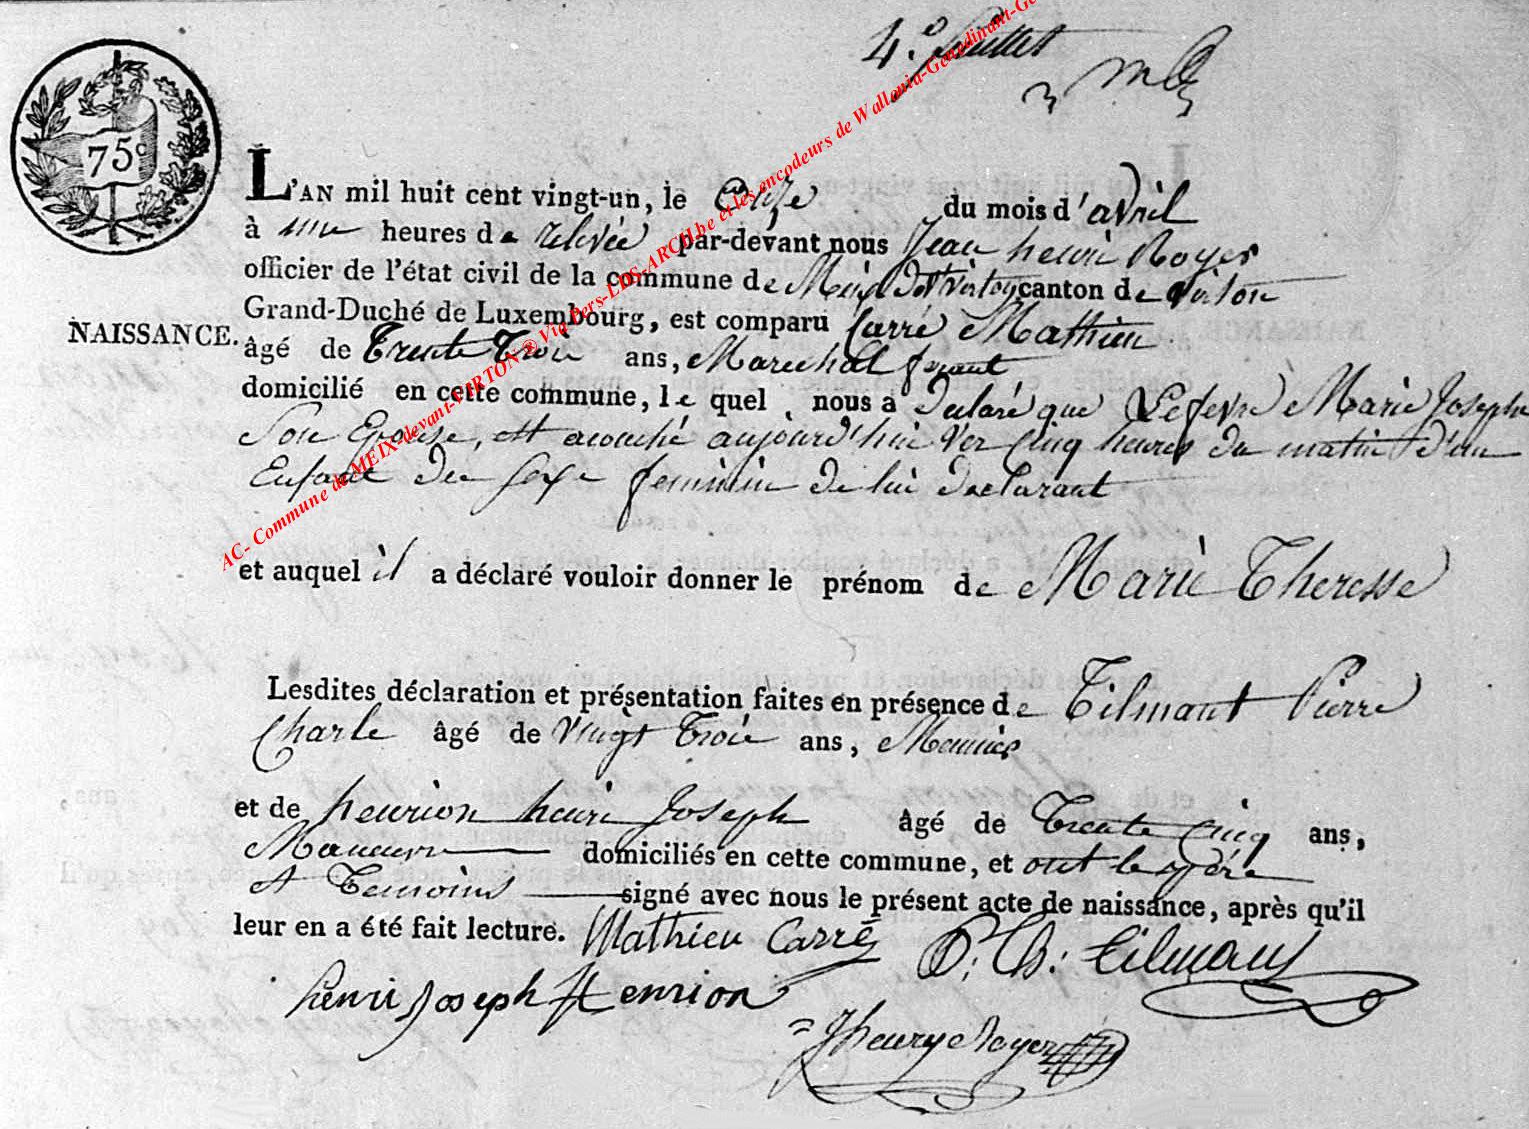 4.e feuillet
75c
L'AN mil huit cent vingt-un, le onze du mois d'avril
à une heures de relevée par-devant nous Jean henri Royer
officier de l'état civil de la commune de Meix dvt virton canton de virton
Grand-Duché de Luxembourg, est comparu Carré Mathieu
NAISSANCE.
âgé de Trente Trois ans, Marechal ferant
domicilié en cette commune, le quel nous a declaré que Lefevre Marie Joseph
Son Epouse, est acouché aujourd'hui ver Cinq heures du matin d'un
Enfant du sexe feminin de lui declarant
et auquel il a déclaré vouloir donner le prénom de Marie Theresse
Lesdites déclaration et présentation faites en présence de Tilmant Pierre
Charle âgé de vingt Trois ans, Meunier
et de henrion henri Joseph âgé de Trente Cinq ans,
Maneuvre domiciliés en cette commune, et ont le père
et Temoins signé avec nous le présent acte de naissance, après qu'il
leur en a été fait lecture. Mathieu Carré P: Ch: tilmant
henri joseph Henrion
JhenryRoyer
AC- Commune de MEIX-devant-VIRTON ® Via Pers-LDS-ARCH.be et les encodeurs de Wallonia-Genedinant-Ge